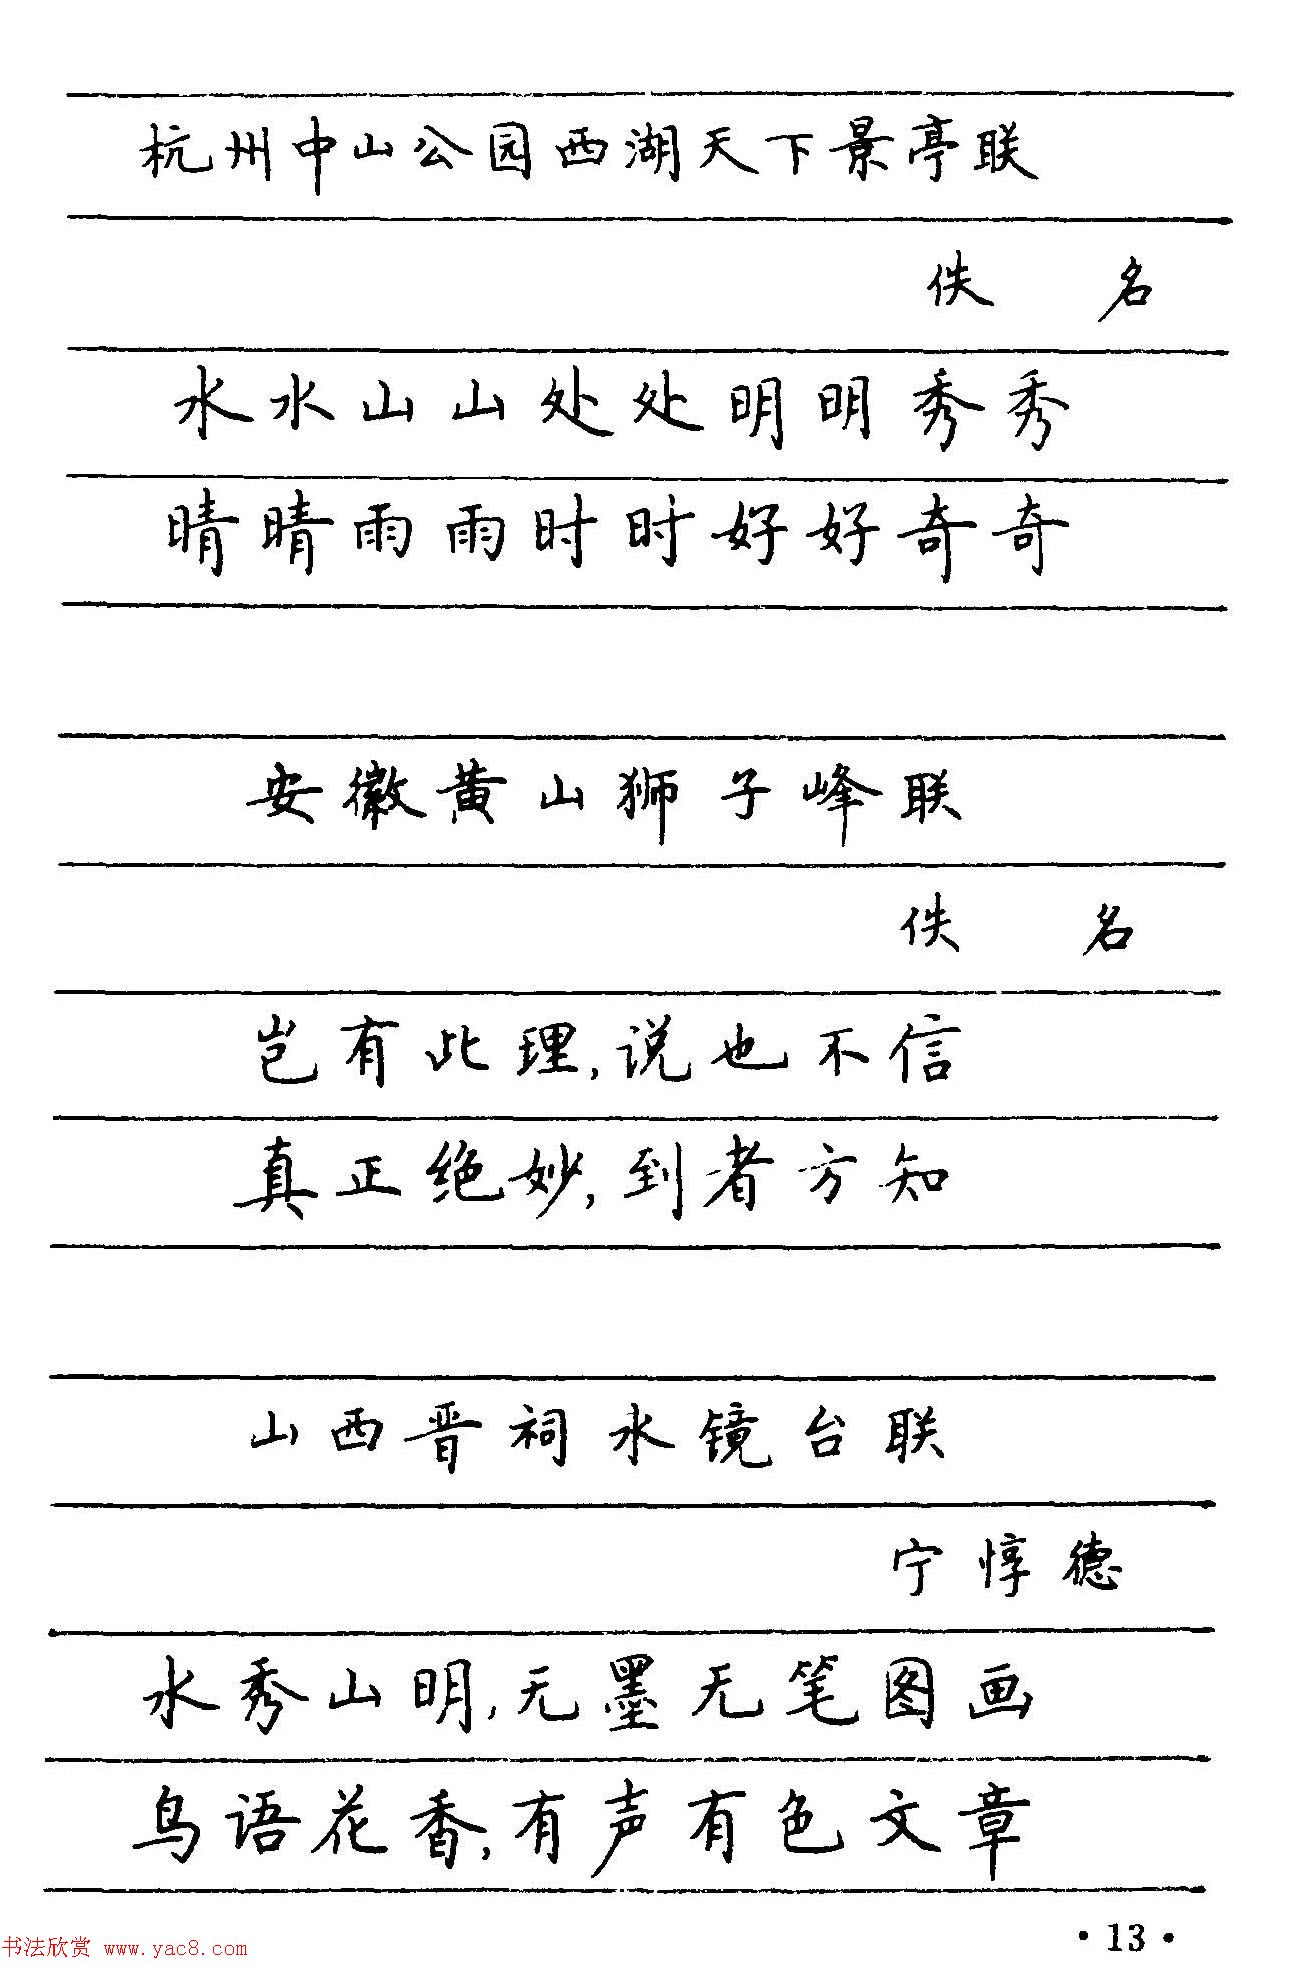 杭州中山公园西湖天下景亭联
佚 名
水水山山处处明明秀秀
晴晴雨雨时时好好奇奇
安徽黄山狮子峰联
佚 名
岂有此理,说也不信
真正绝妙,到者方知
山西晋祠水镜台联
宁惇德
水秀山明,无墨无笔图画
鸟语花香,有声有色文章
·13·
书法欣赏 www.yac8.com